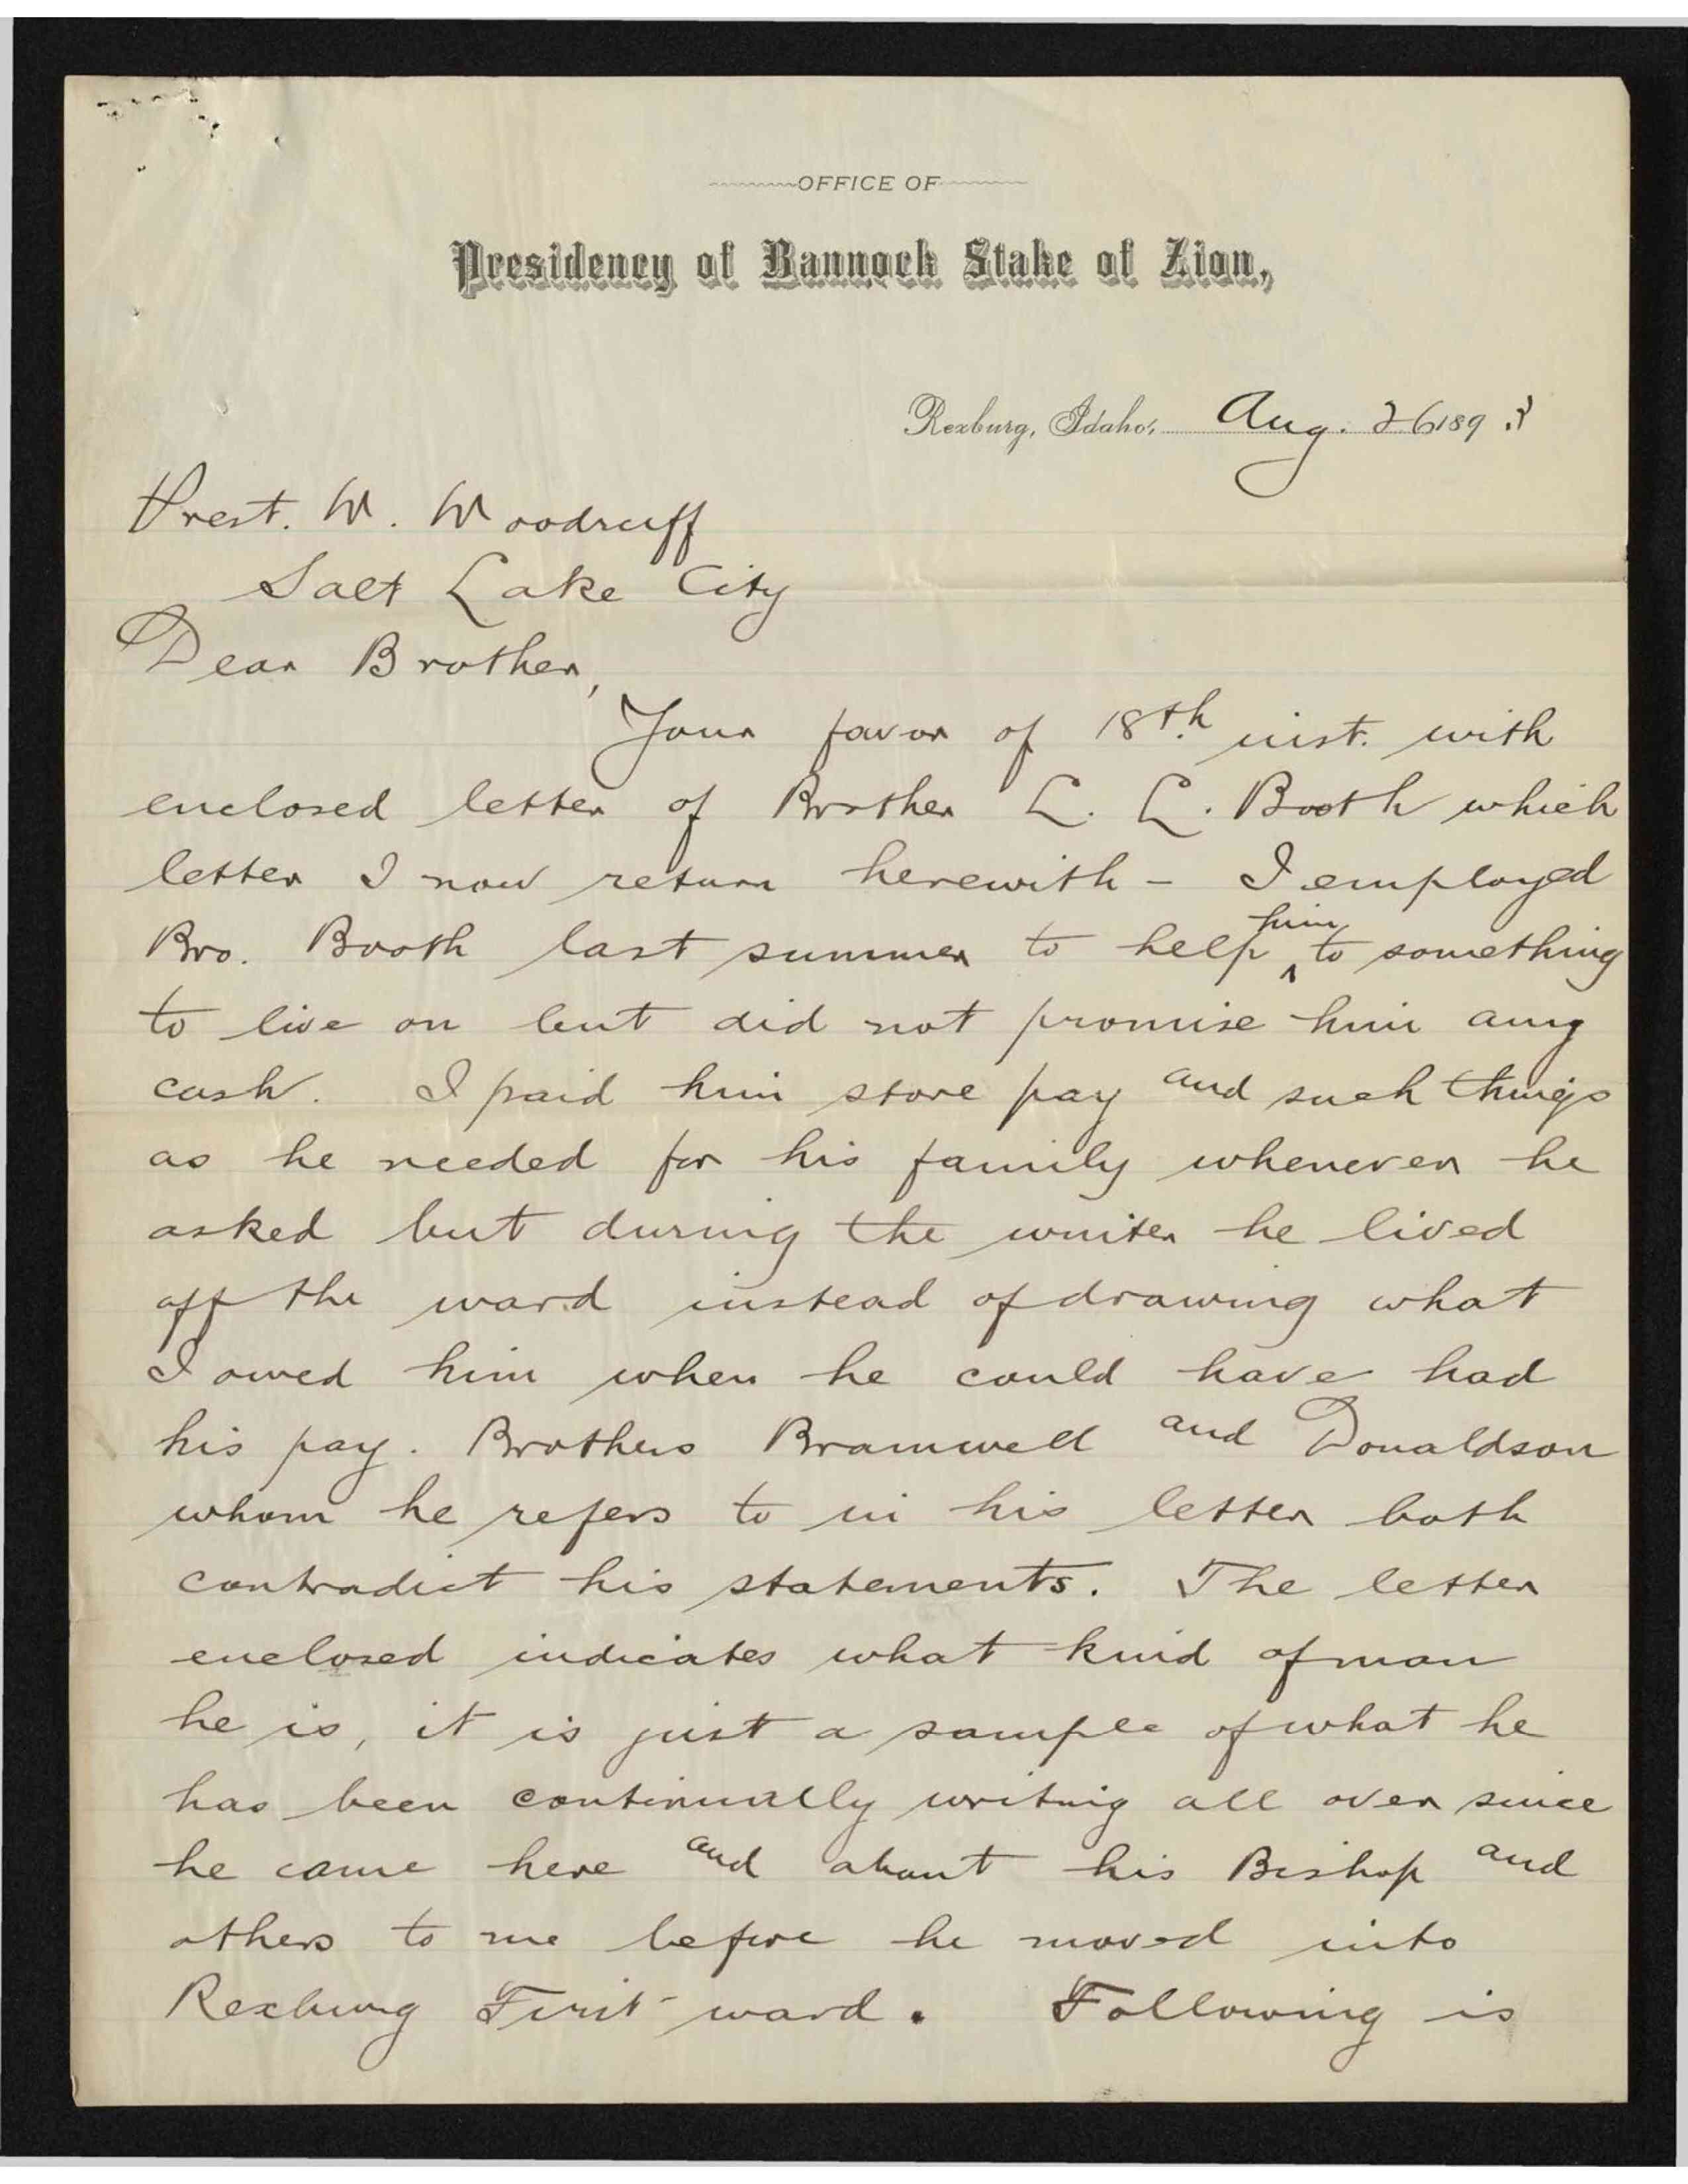 OFFICE OF
Presidency of Bannock Stake of Zion,
Rexburg, Idaho, Aug. 26 1893
Prest. W. Woodruff
Salt Lake City
Dear Brother,
Your favor of 18th. inst. with
enclosed letter of Brother L. L. Booth which
letter I now return herewith - I employed
him
Bro. Booth last summer to help ^ to something
to live on but did not promise him any
cash. I paid him store pay and such things
as he needed for his family whenever he
asked but during the winter he lived
off the ward instead of drawing what
I owed him when he could have had
his pay. Brothers Bramwell and Donaldson
whom he refers to in his letter both
contradict his statements. The letter
enclosed indicates what kind of man
he is, it is just a sample of what he
has been continually writing all over since
he came here and about his Bishop and
others to me before he moved into
Rexburg First ward. Following is